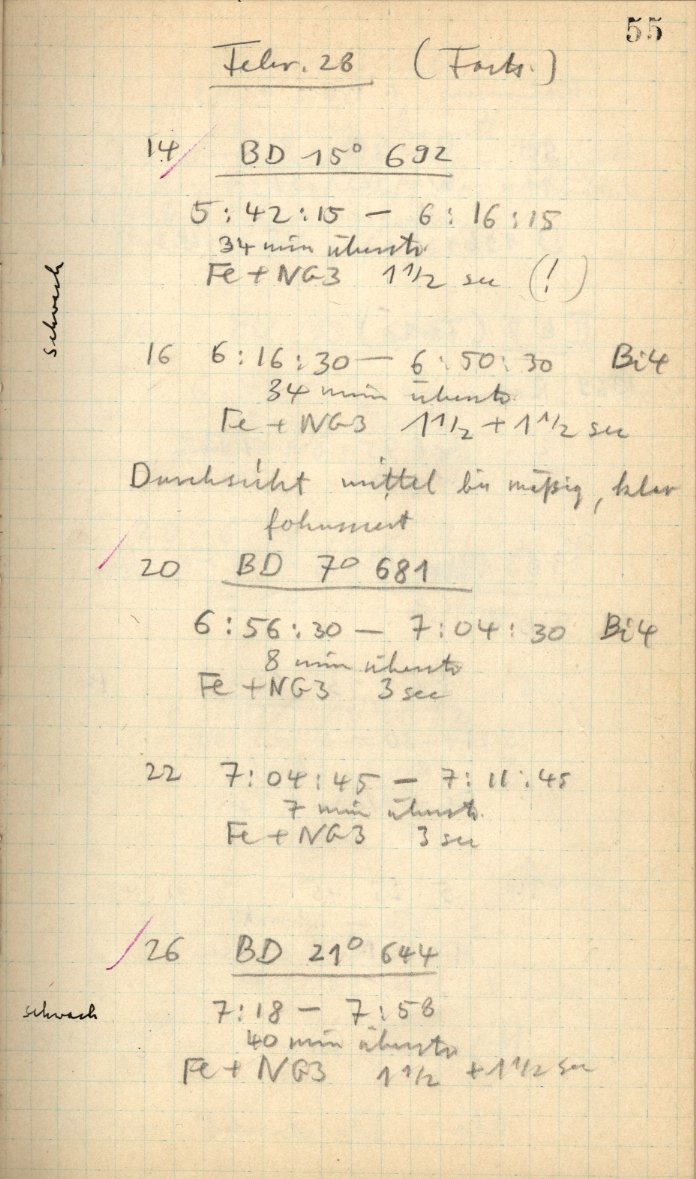 55
Febr. 28 (Forts.)
14 BD 15° 692
5:42:15 – 6:16:15
34 min überstr.
Fe + NG3 1 1/2 sec (!)
schwach
16 6:16:30 – 6:50:30 Bi4
34 min überstr.
Fe + NG3 1 1/2 + 1 1/2 sec
Durchsicht mittel bis mäßig, klar
fokussiert
20 BD 7° 681
6:56:30 – 7:04:30 Bi4
8 min überstr.
Fe + NG3 3 sec
22 7:04:45 – 7:11:45
7 min überstr.
Fe + NG3 3 sec
26 BD 21° 644
schwach 7:18 – 7:58
40 min überstr.
Fe + NG3 1 1/2 + 1 1/2 sec